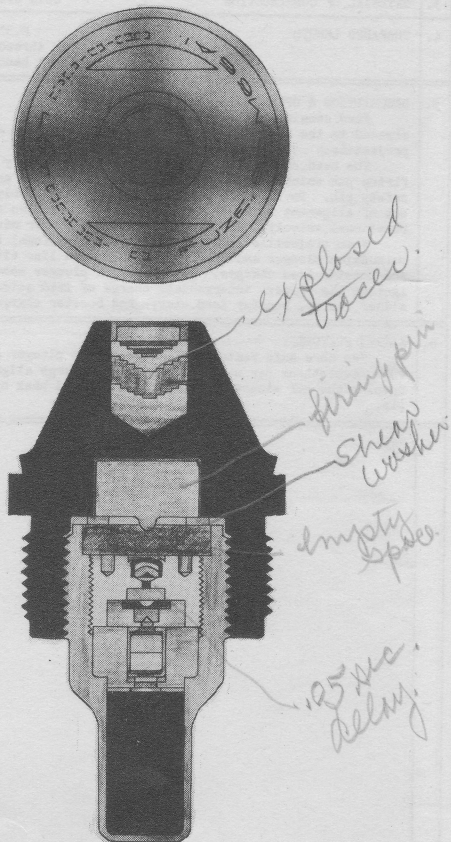 M66A1
FUZE,
exploded
tracer.
firing pin
Shear
washer
empty
space
sec.
delay.